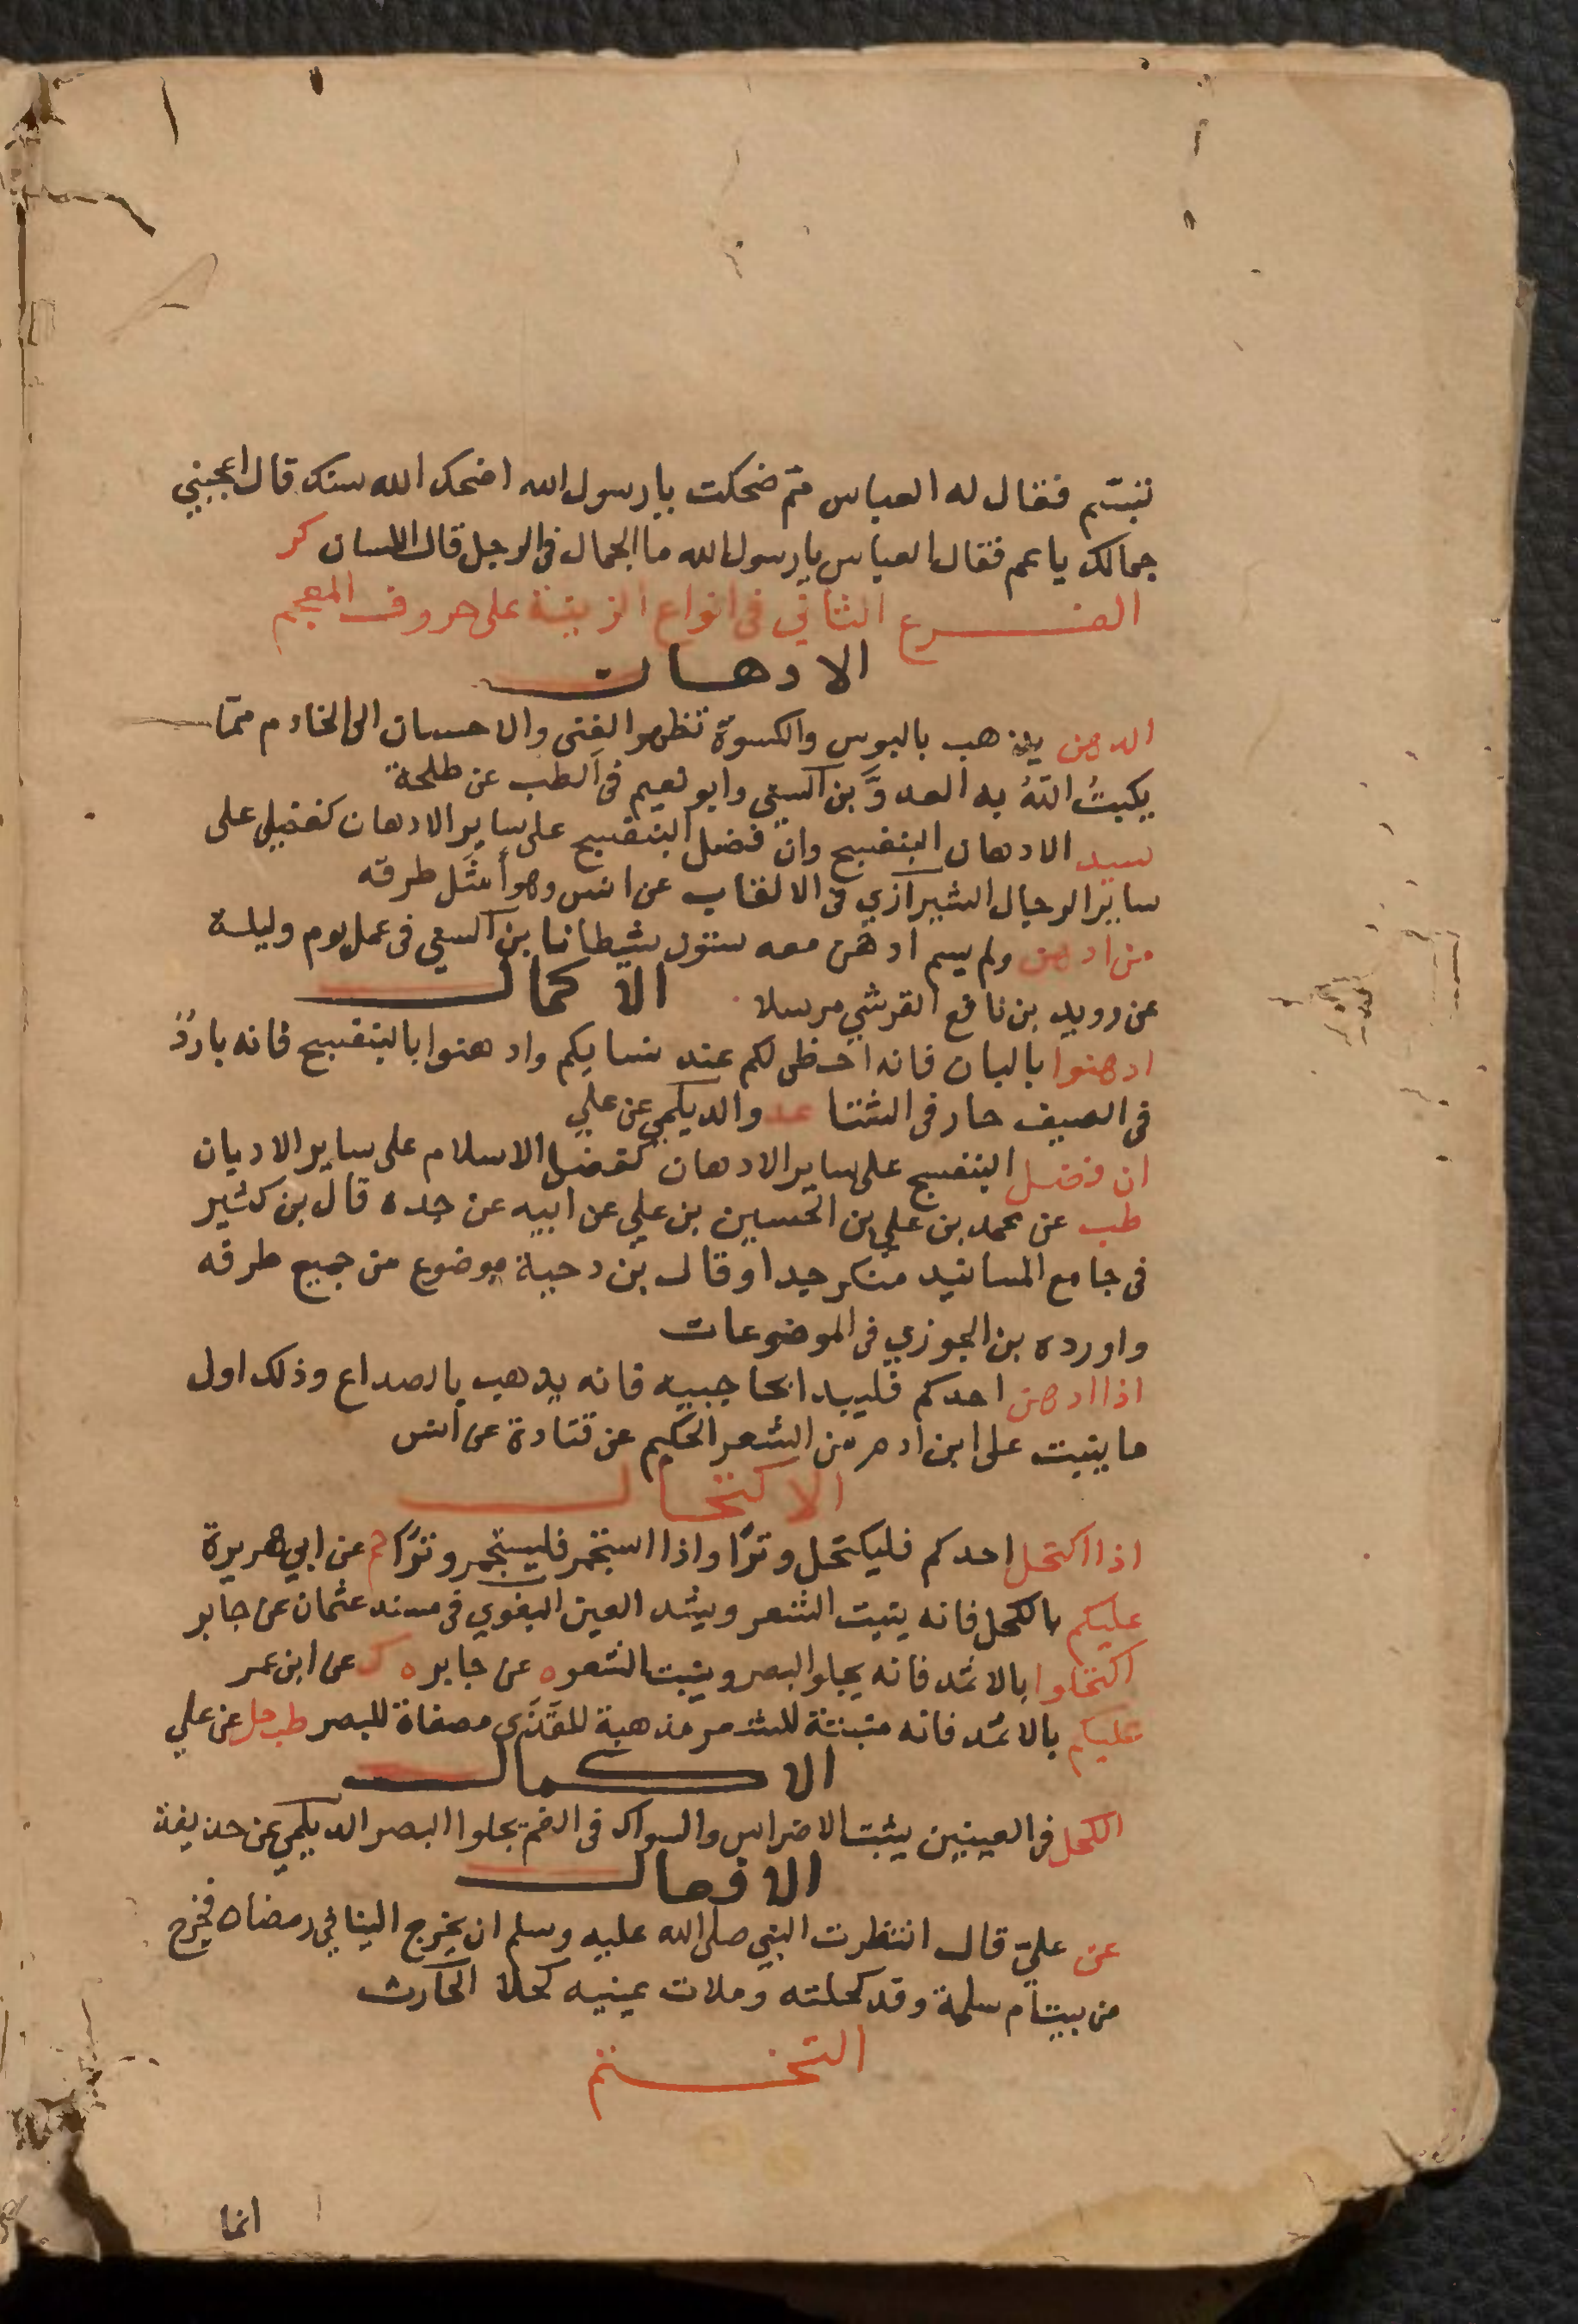 تبسم فقال له العباس مم ضحكت يا رسول الله اضحك الله سنك قال اعجبني
جمالك يا عم فقال العباس يا رسول الله ما الجمال في الرجل قال اللسان كر
الفرع الثاني في انواع الزينة على حروف المعجم
الادهان
الدهن يذهب بالبوس والكسوة تظهر الغنى والاحسان الى الخادم ممّا
يكبتُ اللهُ به العدوَّ بن السني وابو نعيم في الطب عن طلحة
سيد الادهان البنفسج وان فضل البنفسج على ساير الادهان كفضلي على
ساير الرجال الشيرازي في الالقاب عن انس وهو أمثَل طرقه
من ادهن ولم يسم ادهن معه ستون شيطانا بن السني في عمل يوم وليلة
عن دويد بن نافع القرشي مرسلا الاكمال
ادهنوا بالبان فانه احظى لكم عند نسايكم وادهنوا بالبنفسج فانه باردٌ
في الصيف حار في الشتا عد والديلمي عن علي
ان فضل البنفسج على ساير الادهان كفضل الاسلام على ساير الاديان
طب عن محمد بن علي بن الحسين بن علي عن ابيه عن جده قال بن كثير
في جامع المسانيد منكر جيدا وقال بن دحية موضوع من جميع طرقه
واورده بن الجوزي في الموضوعات
اذا ادهن احدكم فليبدا بحاجبيه فانه يذهب بالصداع وذلك اول
ما ينبت على ابن ادم من الشعر الحكيم عن قتادة عن انس
الاكتحال
اذا اكتحل احدكم فليكتحل وترًا واذا استجمر فليستجمر وترًا حم عن ابي هريرة
عليكم بالكحل فانه ينبت الشعر ويشد العين البغوي في مسند عثمان عن جابر
اكتحلوا بالاثمد فانه يجلو البصر وينبت الشعر ه عن جابر ه ك عن ابن عمر
عليكم بالاثمد فانه منبتة للشعر مذهبة للقَذَى مصفاة للبصر طب حل عن علي
الاكمال
الكحل في العينين يثبت الاضراس والسواك في الفم يجلوا البصر الديلمي عن حذيفة
الافعال
عن عليّ قال انتظرت النبي صلى الله عليه وسلم ان يخرج الينا في رمضان فخرج
من بيت ام سلمة وقد كحلته وملات عينيه كحلا الحارث
التختم
انما